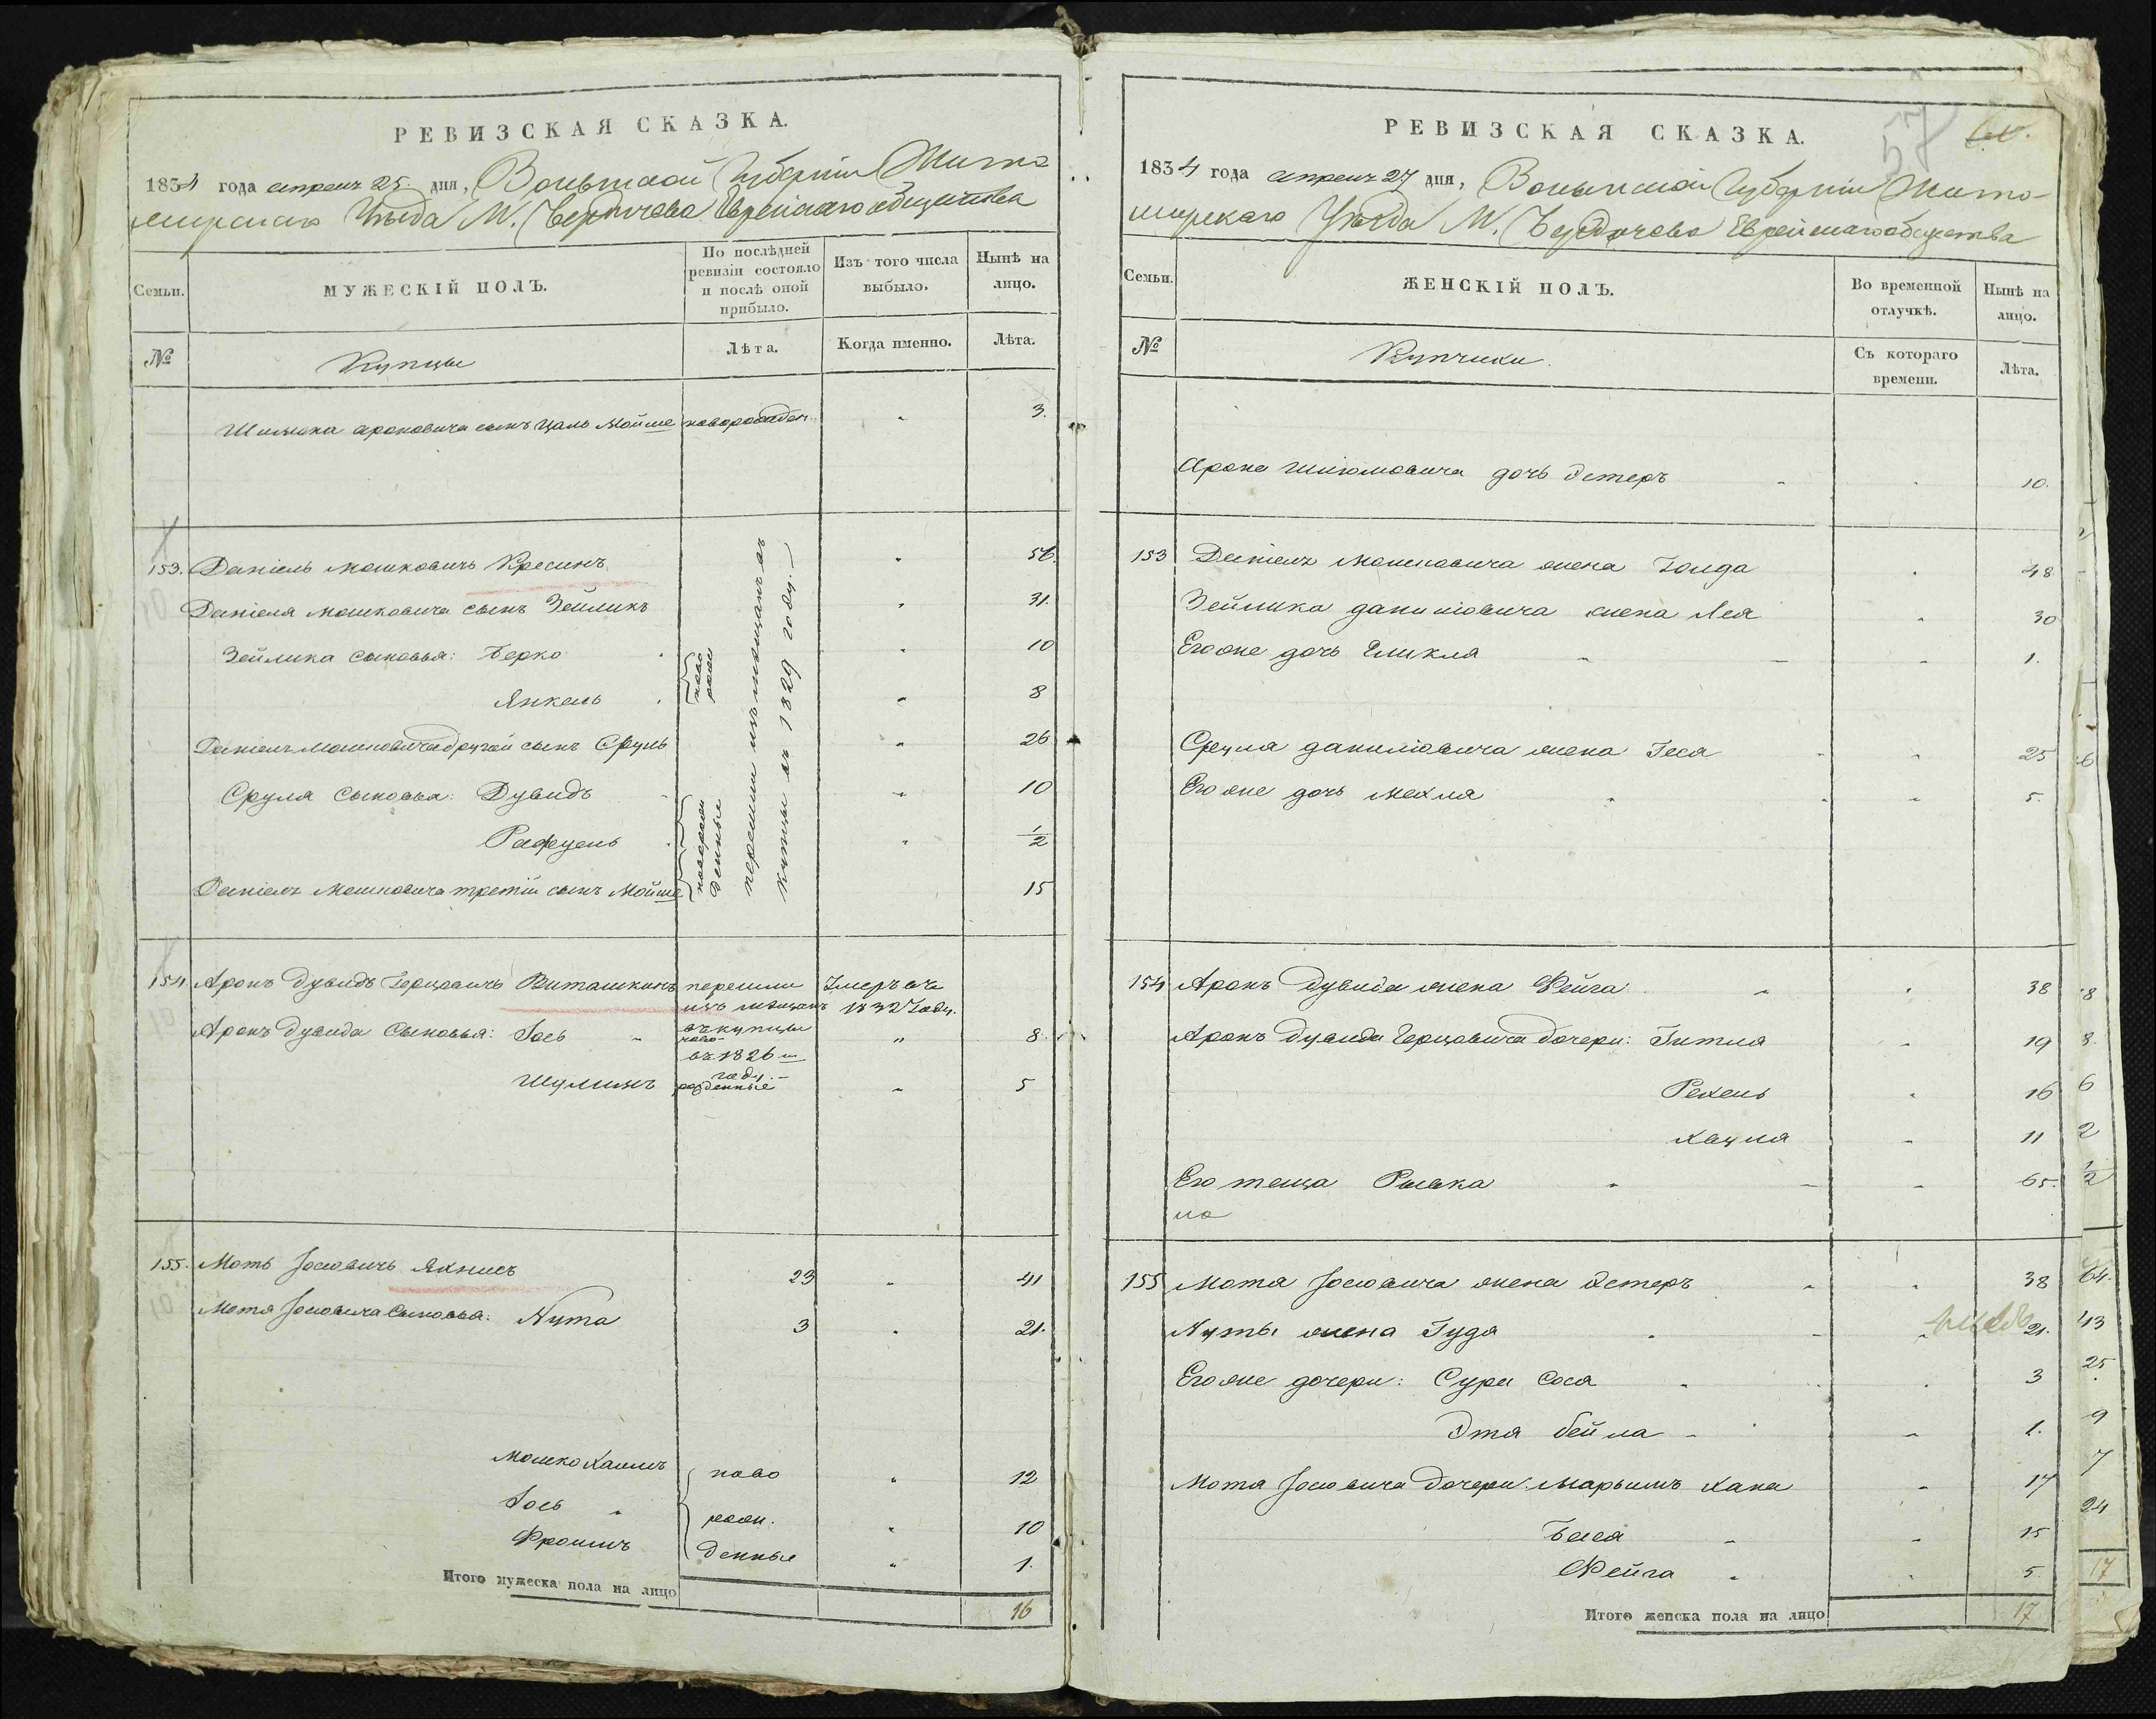 РЕВИЗСКАЯ СКАЗКА.
1834 года апреля 25 дня, Волынской Губерніи Жито
мирскаго Уѣзда М. Бердичева Еврейскаго общества
Семьи.
МУЖЕСКІЙ ПОЛЪ.
По послѣдней ревизіи состояло и послѣ оной прибыло.
Изъ того числа выбыло.
Нынѣ на лицо.
№
Купцы
Лѣта.
Когда именно.
Лѣта.
Шимона ароновича сынъ Цаль Мойше новорожден. 3.
153. Даніель мошковичъ Кресинъ 56.
Даніеля мошковича сынъ Зейликъ 31.
Зейлика сыновья: Берко 10
Янкель 8
ново рож
Даніеля Мошковича другой сынъ Сруль 26
Сруля сыновья: Дувидъ 10
Рафуель 1/2
Даніеля Мошковича третій сынъ Мойше 15
новорож денные
перешли изъ мещанъ въ
купцы въ 1829 году.
154 Аронъ Дувидъ Герцовичъ Виташкинъ перешли Умеръ въ
изъ мещанъ 1832 году.
Аронъ Дувида Сыновья: Іось въ купцы 8.
ново-
въ 1826 м
году.
Шулимъ рожденные 5
155. Моть Іосіовичъ Яхнисъ 23 41
Мотя Іосіовича Сыновья: Нута 3 21.
Мошко Хаимъ ново 12
Іось рож. 10
Фроимъ денные 1.
Итого мужеска пола на лицо 16
РЕВИЗСКАЯ СКАЗКА.
57
1834 года апреля 27 дня, Волынской Губерніи Жито-
мирскаго Уѣзда М. Бердичева Еврейскаго общества
Семьи.
ЖЕНСКІЙ ПОЛЪ.
Во временной отлучкѣ.
Нынѣ на лицо.
№
Купчихи.
Съ котораго времени.
Лѣта.
Арона Шліомовича дочь Эстеръ 10.
153 Даніеля Мошковича жена Голда 48
Зейлика даниліовича жена Лея 30
Его же дочь Еликля 1.
Сруля даниліовича жена Геся 25
Его же дочь Мехля 5.
154 Аронъ Дувида жена Фейга 38
Аронъ Дувида Герцовича дочери: Гитля 19
Рехель 16
Хацля 11
Его теща Ривка 65.
155 Мотя Іосіовича жена Эстеръ 38
Нуты жена Гудя 21.
Его же дочери: Сура Сося 3
Этя бейла 1.
Мотя Іосіовича Дочери: Марьимъ Хана 17
Бася 15
Фейга 5.
Итого женска пола на лицо 17
6
8
8
6
2
1/2
64.
43
25
9
7
24
17